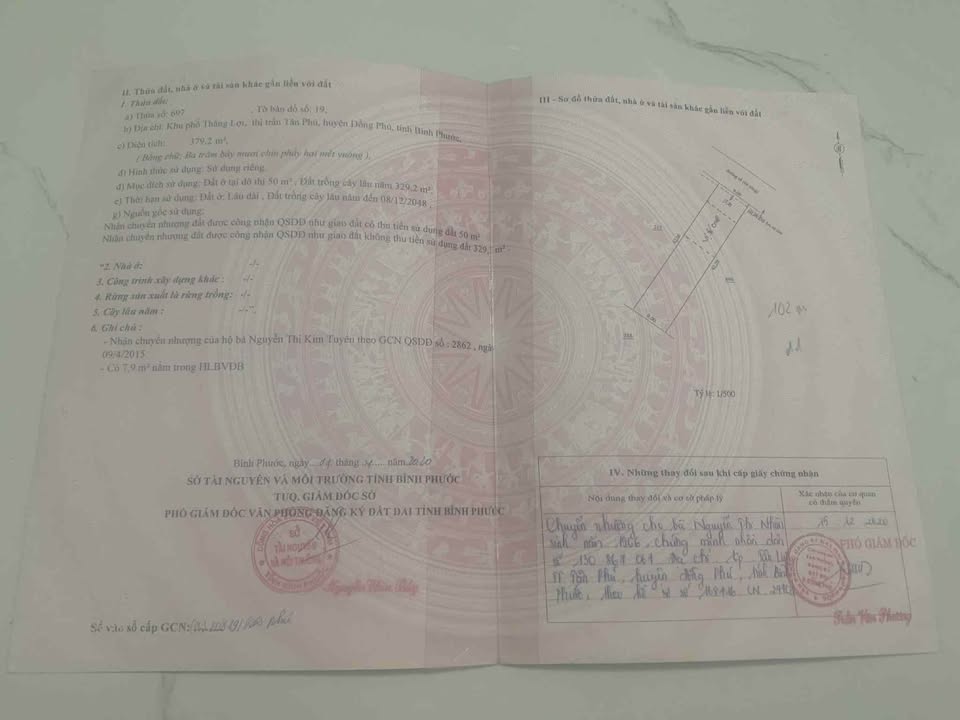 II. Thửa đất, nhà ở và tài sản khác gắn liền với đất
1. Thửa đất:
a) Thửa số: 607 , Tờ bản đồ số: 19,
b) Địa chỉ: Khu phố Thắng Lợi, thị trấn Tân Phú, huyện Đồng Phú, tỉnh Bình Phước,
c) Diện tích: 379,2 m²,
( Bằng chữ: Ba trăm bảy mươi chín phẩy hai mét vuông ),
d) Hình thức sử dụng: Sử dụng riêng,
đ) Mục đích sử dụng: Đất ở tại đô thị 50 m² , Đất trồng cây lâu năm 329,2 m²,
e) Thời hạn sử dụng: Đất ở: Lâu dài , Đất trồng cây lâu năm đến 08/12/2048 ,
g) Nguồn gốc sử dụng:
Nhận chuyển nhượng đất được công nhận QSDĐ như giao đất có thu tiền sử dụng đất 50 m²
Nhận chuyển nhượng đất được công nhận QSDĐ như giao đất không thu tiền sử dụng đất 329, m²
*2. Nhà ở: -/-
3. Công trình xây dựng khác : -/-
4. Rừng sản xuất là rừng trồng: -/-
5. Cây lâu năm : -/-
6. Ghi chú :
- Nhận chuyển nhượng của hộ bà Nguyễn Thị Kim Tuyên theo GCN QSDĐ số : 2862 , ngà
09/4/2015
- Có 7,9 m² nằm trong HLBVĐB
Bình Phước, ngày tháng năm 2020
SỞ TÀI NGUYÊN VÀ MÔI TRƯỜNG TỈNH BÌNH PHƯỚC
TUQ. GIÁM ĐỐC SỞ
PHÓ GIÁM ĐỐC VĂN PHÒNG ĐĂNG KÝ ĐẤT ĐAI TỈNH BÌNH PHƯỚC
SỞ
TÀI NGUYÊN
VÀ MÔI TRƯỜNG
Số vào sổ cấp GCN:
III - Sơ đồ thửa đất, nhà ở và tài sản khác gắn liền với đất
102 m
Tỷ lệ: 1/500
IV. Những thay đổi sau khi cấp giấy chứng nhận
Nội dung thay đổi và cơ sở pháp lý
Xác nhận của cơ quan
có thẩm quyền
Chuyển nhượng cho bà Nguyễn Thị Nhàn
sinh năm 1966, chứng minh nhân dân
số 150 địa chỉ
TT Tân Phú, huyện Đồng Phú, tỉnh Bình
Phước, theo hồ sơ số
15 12 2020
PHÓ GIÁM ĐỐC
Trần Văn Phương